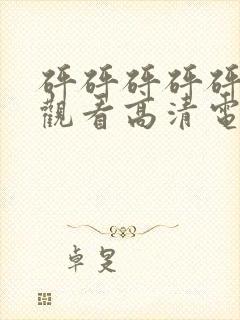 砰砰砰砰砰
觀看高清電
卓旻